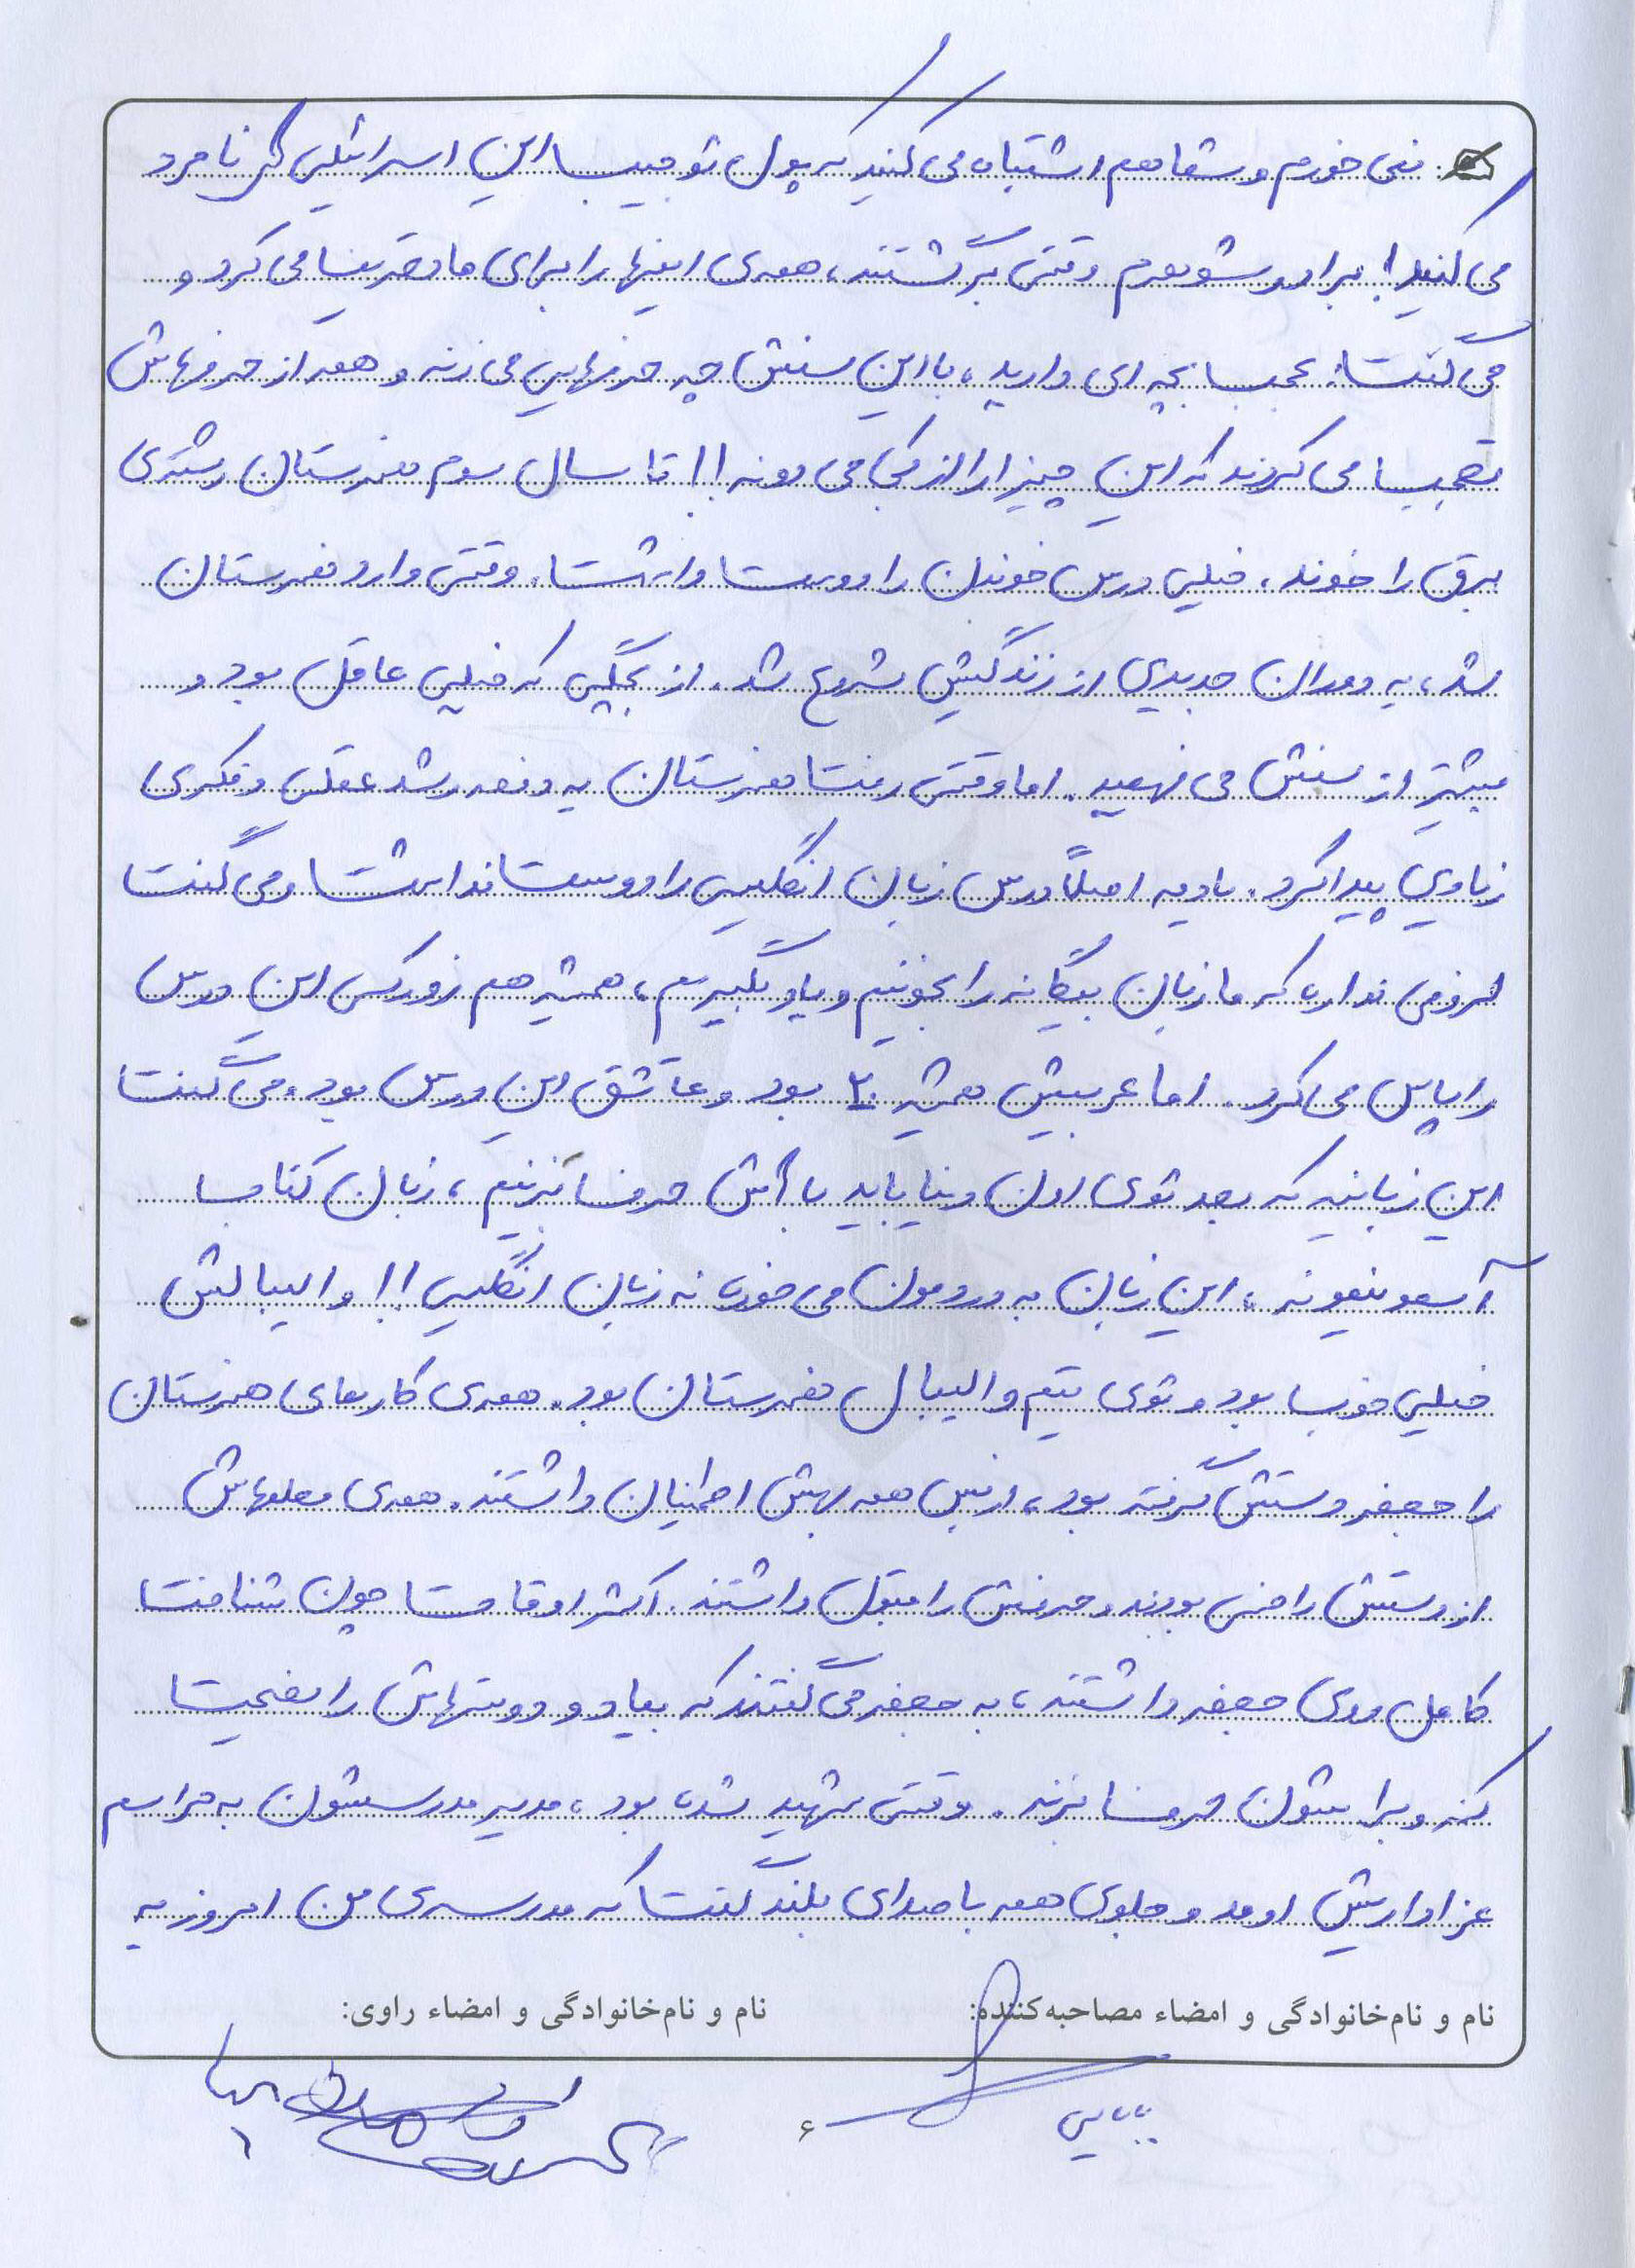 نمی خورم و شما هم اشتباه می کنید که پول تو جیب این اسرائیلی های نامرد
می کنید! برادر شوهرم وقتی برگشتند، همه ی اینها را برای ما تعریف می کرد و
می گفت: عجب بچه ای دارید، با این سنش چه حرفهایی می زنه و همه از حرفهاش
تعجب می کردند که این چیزا را از کجا می دونه!! تا سال سوم هنرستان رشته ی
برق را خوند، خیلی درس خوندن را دوست داشت. وقتی وارد هنرستان
شد، یه دوران جدیدی از زندگیش شروع شد. از بچگی که خیلی عاقل بود و
بیشتر از سنش می فهمید. اما وقتی رفت هنرستان یه دفعه رشد عقلی و فکری
زیادی پیدا کرد. یادمه اصلاً درس زبان انگلیسی را دوست نداشت و می گفت
لزومی نداره که ما زبان بیگانه را بخونیم و یاد بگیریم، همیشه هم زورکی این درس
را پاس می کرد. اما عربیش همیشه ۲۰ بود و عاشق این درس بود. می گفت
این زبانیه که بعد توی اون دنیا باید باهاش حرف بزنیم، زبان کتاب
آسمونیمونه، این زبان به دردمون می خوره نه زبان انگلیسی!! والیبالش
خیلی خوب بود و توی تیم والیبال هنرستان بود. همه ی کارهای هنرستان
را جعفر دستش گرفته بود، از بس همه بهش اطمینان داشتند. همه ی معلمهاش
از دستش راضی بودند و حرفش را قبول داشتند. اکثر اوقات چون شناخت
کامل روی جعفر داشتند، به جعفر می گفتند که بیاد و دوستهاش را نصیحت
کنه و براشون حرف بزند. وقتی شهید شده بود، مدیر مدرسشون به مراسم
عزاداریش اومد و جلوی همه با صدای بلند گفت که مدرسه ی من امروز یه
نام و نام‌خانوادگی و امضاء مصاحبه‌کننده: نام و نام‌خانوادگی و امضاء راوی:
۶